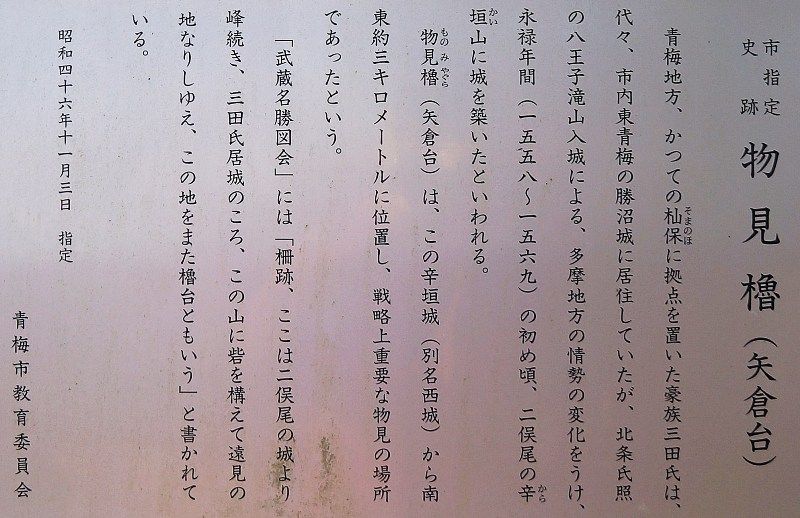 市指定
史跡
物見櫓（矢倉台）
青梅地方、かつての杣保に拠点を置いた豪族三田氏は、
そまのほ
代々、市内東青梅の勝沼城に居住していたが、北条氏照
の八王子滝山入城による、多摩地方の情勢の変化をうけ、
永禄年間（一五五八～一五六九）の初め頃、二俣尾の辛
から
垣山に城を築いたといわれる。
かい
物見櫓（矢倉台）は、この辛垣城（別名西城）から南
ものみやぐら
東約三キロメートルに位置し、戦略上重要な物見の場所
であったという。
「武蔵名勝図会」には「柵跡、ここは二俣尾の城より
峰続き、三田氏居城のころ、この山に砦を構えて遠見の
地なりしゆえ、この地をまた櫓台ともいう」と書かれて
いる。
昭和四十六年十一月三日　指定
青梅市教育委員会